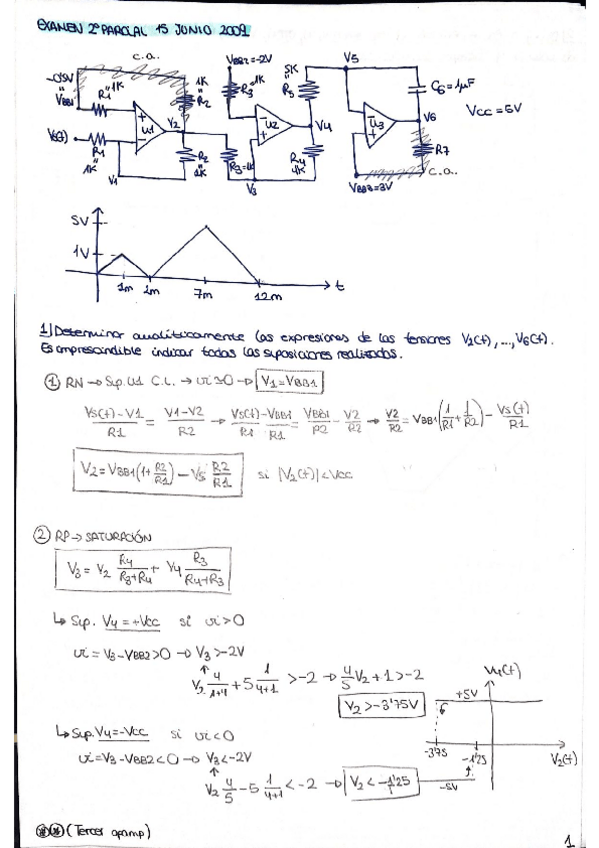 EXAMEN 2º PARCIAL 15 JUNIO 2009
c.a.
-0'5V
"
VBB1
R1 "1K
1K
"
R2
VBB2=-2V
R3 "1K
5K
"
R5
V5
C6=1μF
VCC=5V
+
-
u1
V2
-
+
u2
V4
-
+
u3
V6
R7
VS(t)
R1
"
1K
V1
R2
"
1K
R3=1K
V3
R4
"
4K
VBB3=3V
c.a.
5V
1V
1m
2m
7m
12m
t
1) Determinar analíticamente las expresiones de las tensiones V2(t), ..., V6(t).
Es imprescindible indicar todas las suposiciones realizadas.
① RN → Sup. U1 C.L. → vi≃0 → V1=VBB1
VS(t)-V1/R1 = V1-V2/R2 → VS(t)/R1 - VBB1/R1 = VBB1/R2 - V2/R2 → V2/R2 = VBB1(1/R1+1/R2) - VS(t)/R1
V2=VBB1(1+R2/R1)-VS R2/R1 si |V2(t)|<VCC
② RP → SATURACIÓN
V3 = V2 R4/R3+R4 + V4 R3/R4+R3
↳ Sup. V4=+VCC si vi>0
vi=V3-VBB2>0 → V3>-2V
V2 4/1+4 + 5 1/4+1 >-2 → 4/5 V2+1>-2
V2>-3'75V
↳ Sup. V4=-VCC si vi<0
vi=V3-VBB2<0 → V3<-2V
V2 4/5 - 5 1/4+1 <-2 → V2<-1'25
V4(t)
+5V
-3'75
-1'25
-5V
V2(t)
(Tercer opamp)
1